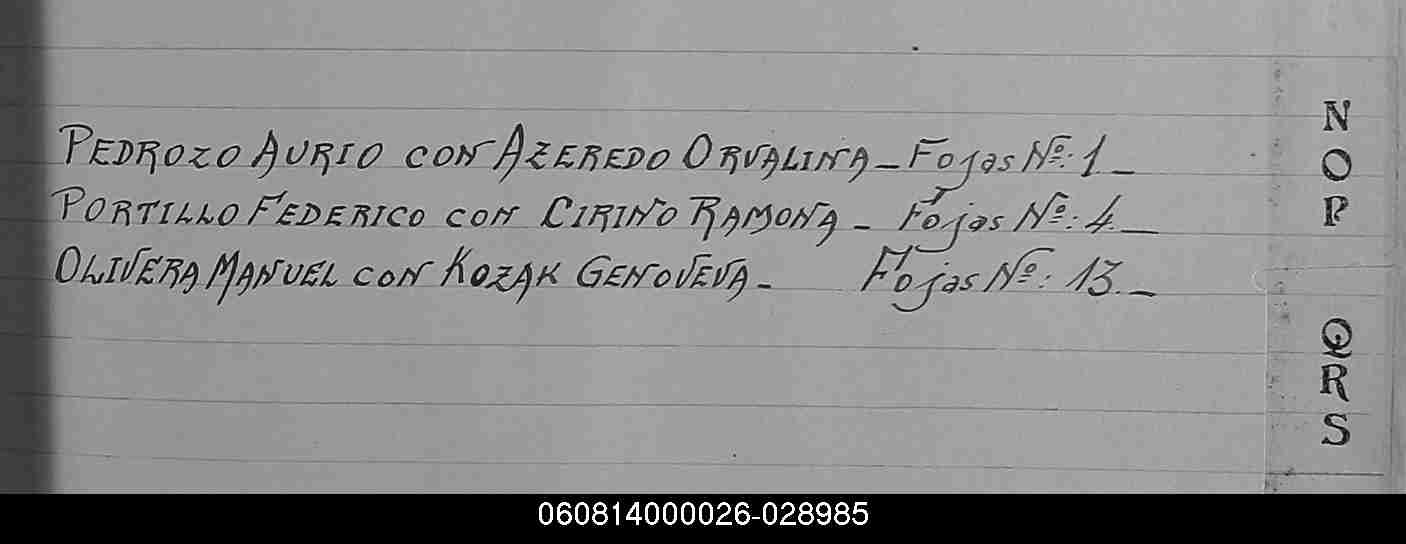 PEDROZO AURIO CON AZEREDO ORVALINA - Fojas Nº: 1 -
PORTILLO FEDERICO CON CIRINO RAMONA - Fojas Nº: 4. -
OLIVERA MANUEL CON KOZAK GENOVEVA - Fojas Nº: 13. -
N
O
P
Q
R
S
060814000026-028985